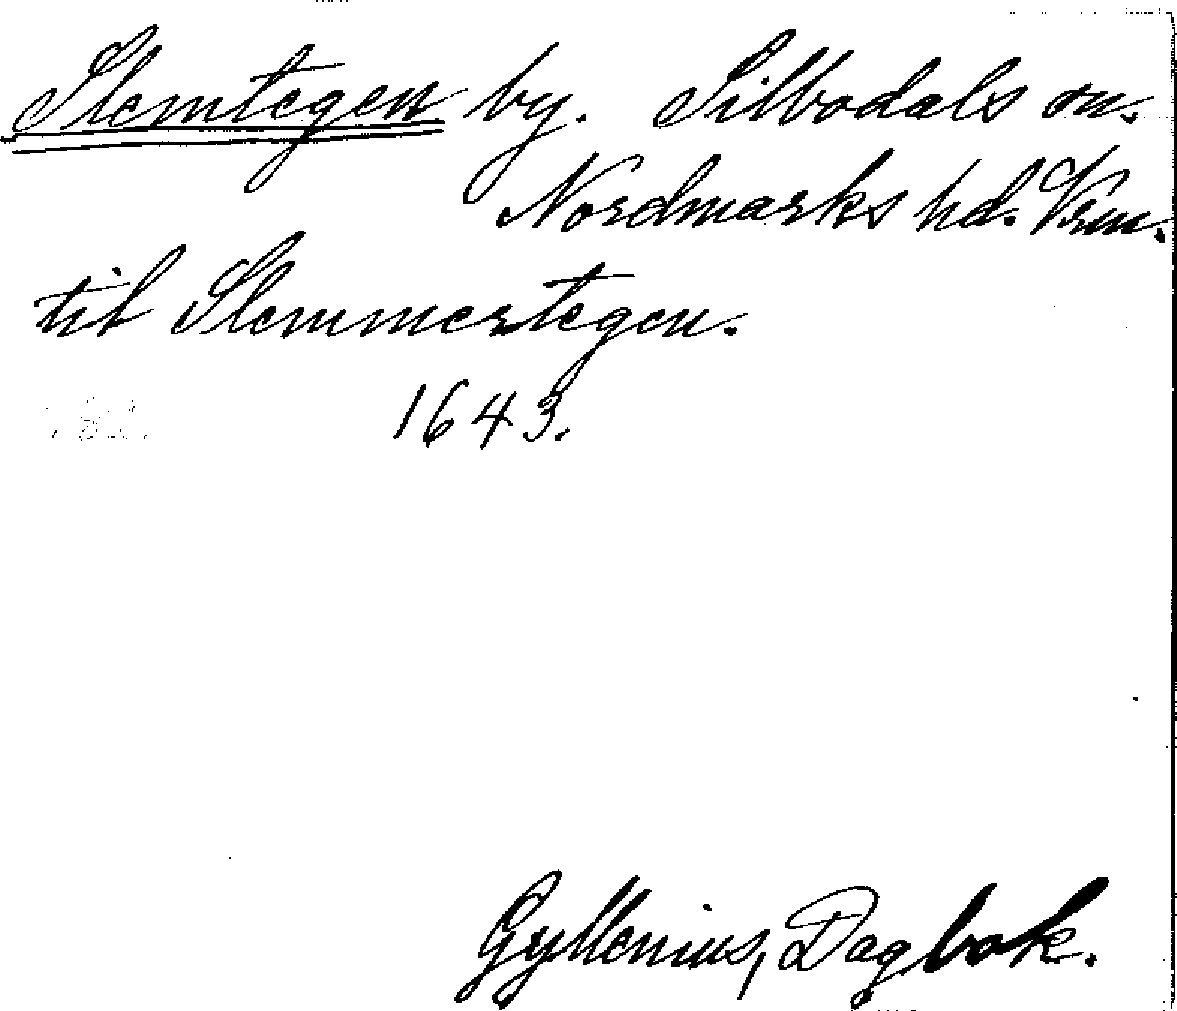 Slemtegen by. Silbodals sn.
Nordmarks hd. Vrm.
til Slemmertegen.
1643.
Gyllenius, Dagbok.